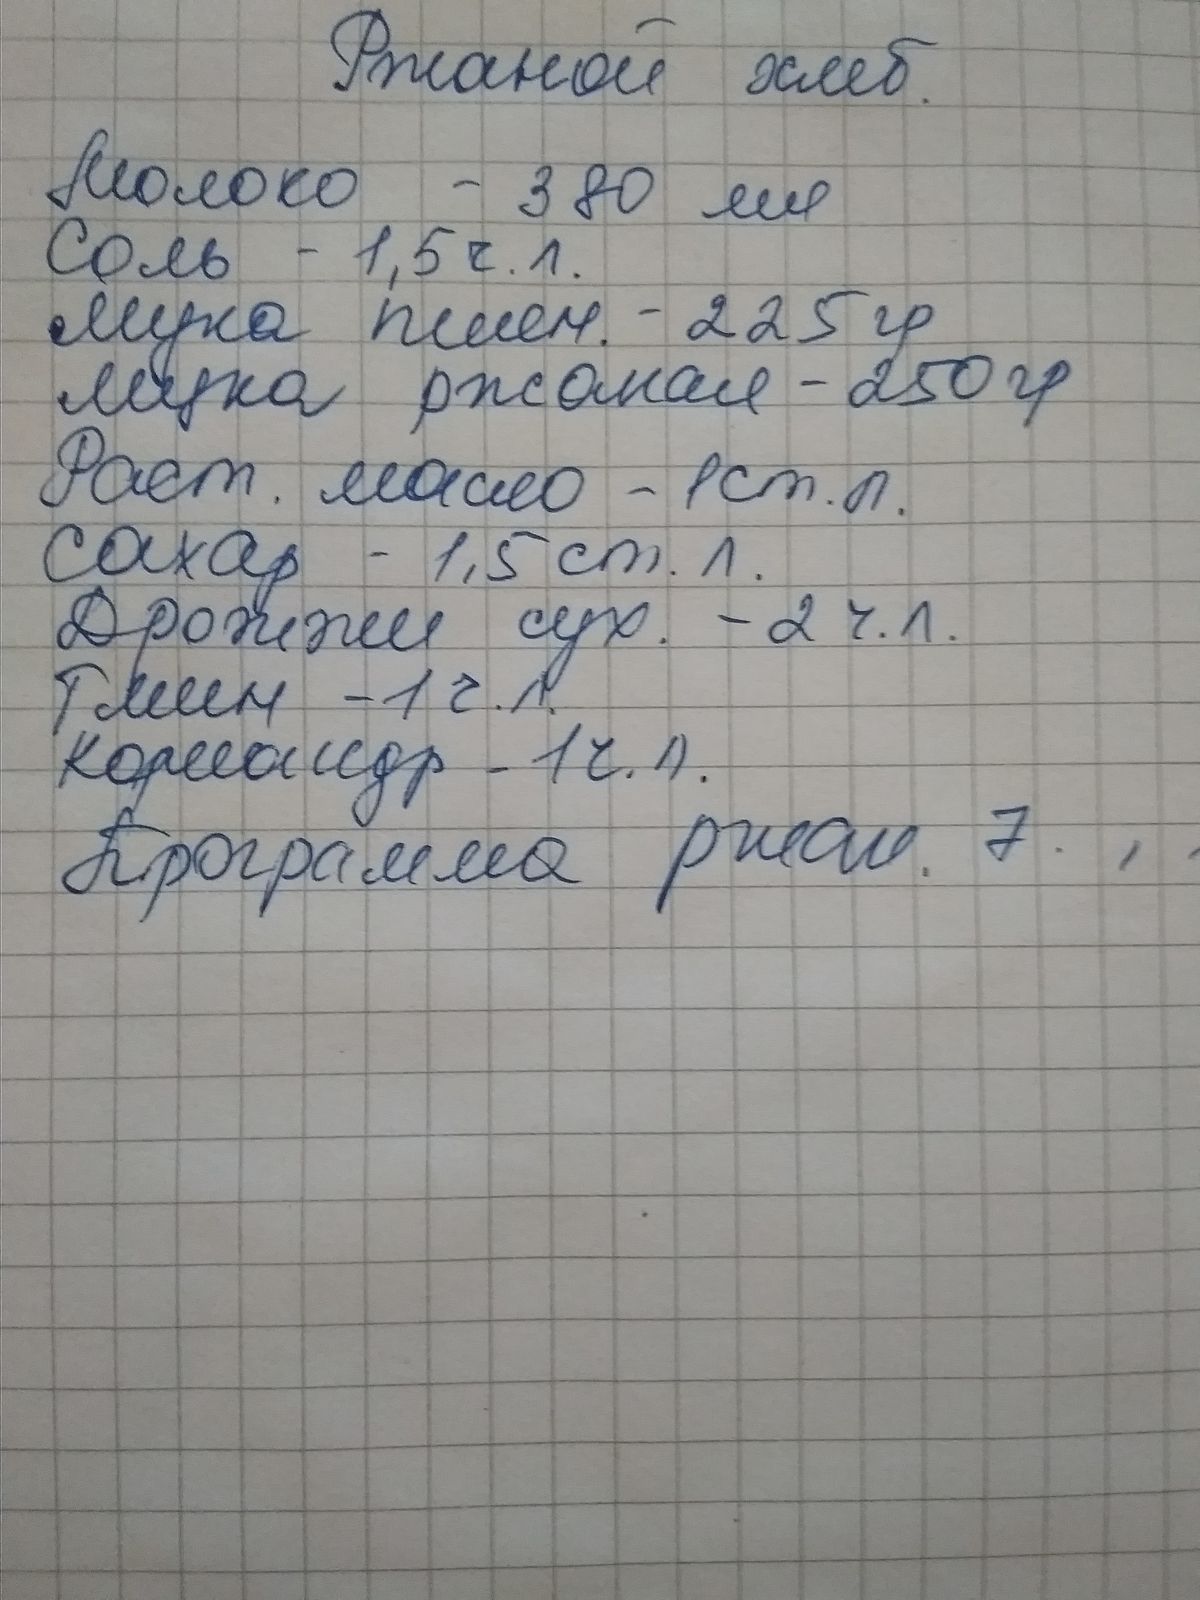 Ржаной хлеб.
Молоко - 380 мл
Соль - 1,5 ч.л.
Мука пшен. - 225 гр
Мука ржаная - 250 гр
Раст. масло - 1 ст.л.
Сахар - 1,5 ст.л.
Дрожжи сух. - 2 ч.л.
Тмин - 1 ч.л.
Кориандр - 1 ч.л.
Программа ржан. 7.